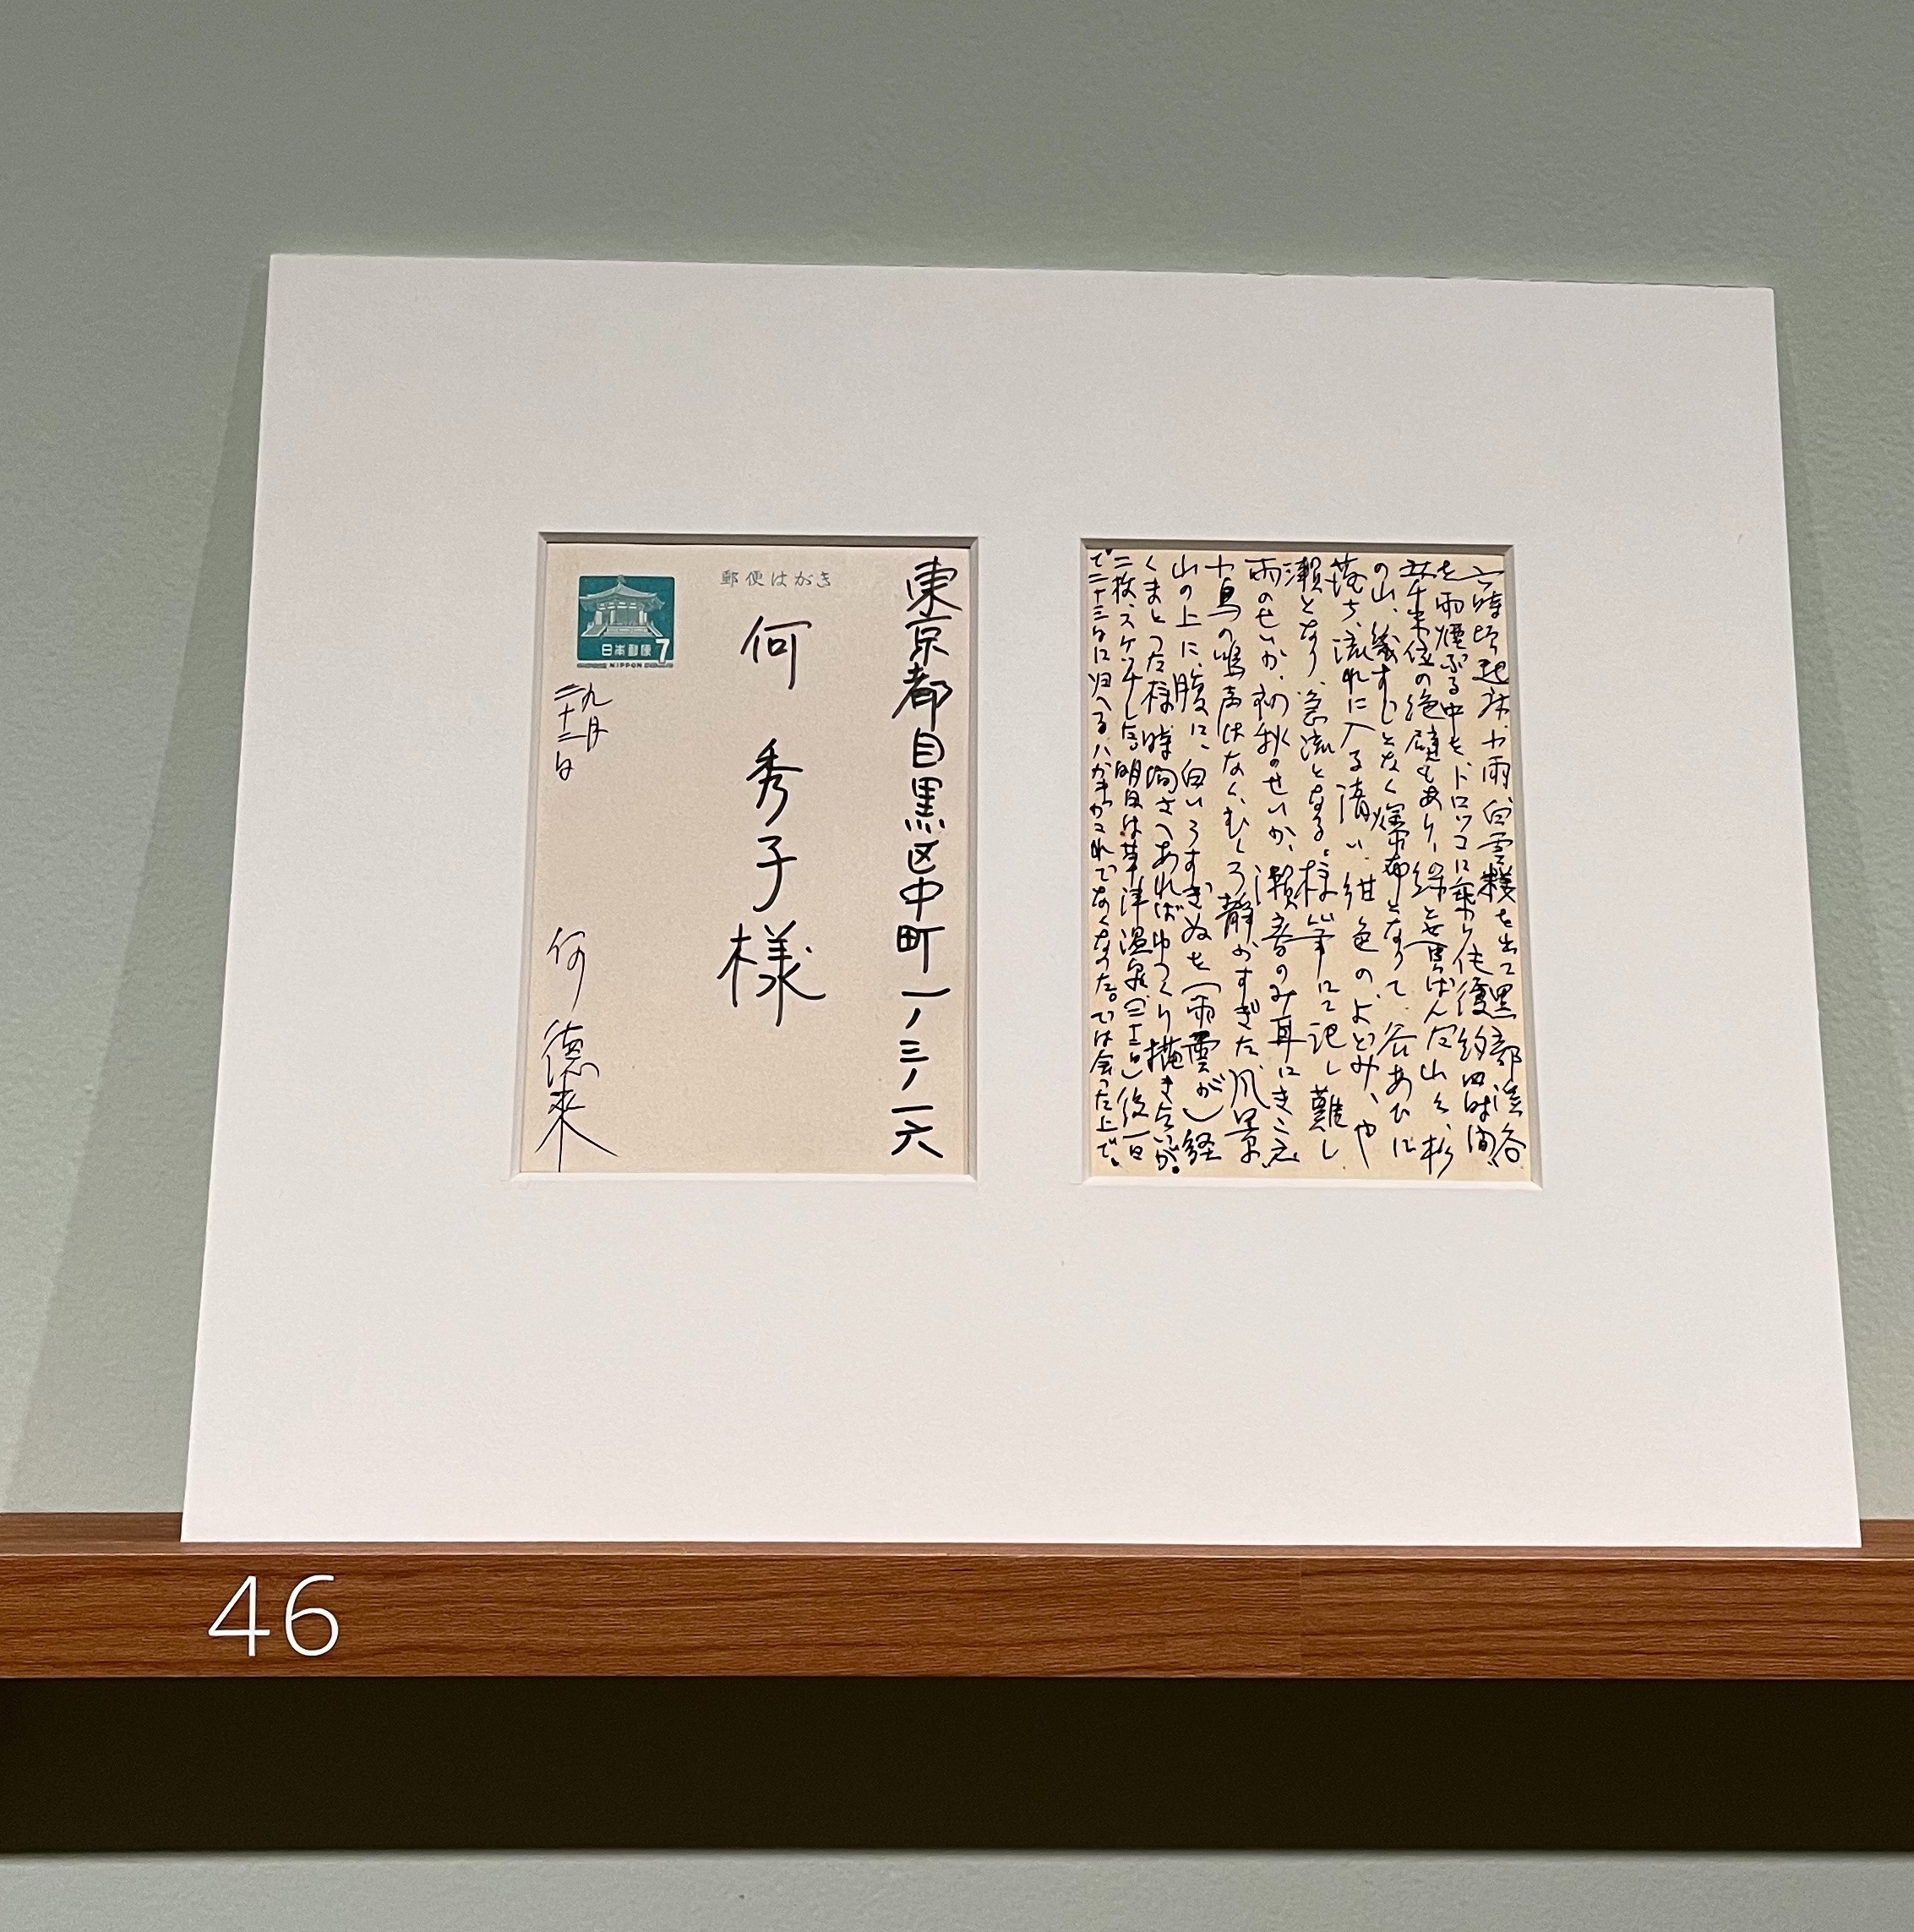 郵便はがき
日本郵便 7
NIPPON
東京都目黒区中町一ノ三ノ一六
何秀子様
九月
二十二日
何德來
六時半起床、小雨、白雲楼を出て黒部渓谷
を雨煙ぶる中を、ドロッコに乗り往復約四時間、
の絶壁もあり、緑と
の山、幾すじとなく瀑布となりて、谷あひに
落ち、流れに入る、清い紺色のよどみ、や
瀬となり、急流となる。様筆にて記し難し
雨のせいか、初秋のせいか、瀬音のみ耳にきこえ
小鳥の鳴声はなく、むしろ静かすぎた風景、
山の上に、腹に、白いうすぎぬを(雨雲が)経
くまとった様、時間さへあればゆっくり描き度いが。
二枚、スケッチした、明日は草津温泉(二十三日)後一日
で二十三日に帰へる、ハガキがこれでなくなった。では会った上で。
46